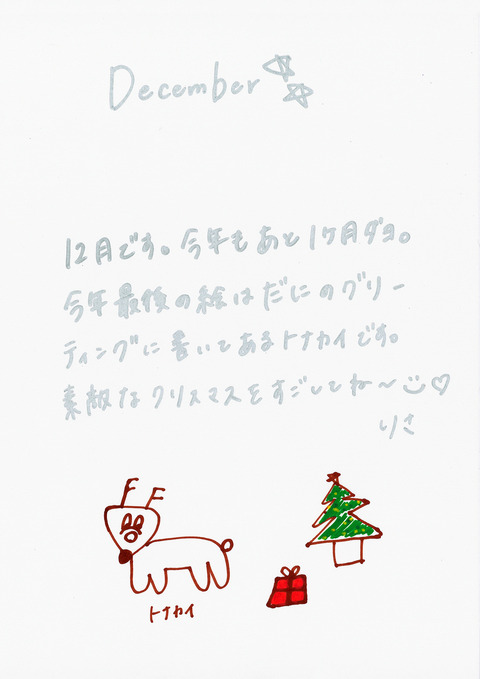 December
12月です。今年もあと1ケ月ダヨ。
今年最後の絵はだにのグリー
ティングに書いてあるトナカイです。
素敵なクリスマスをすごしてね〜
りさ
トナカイ